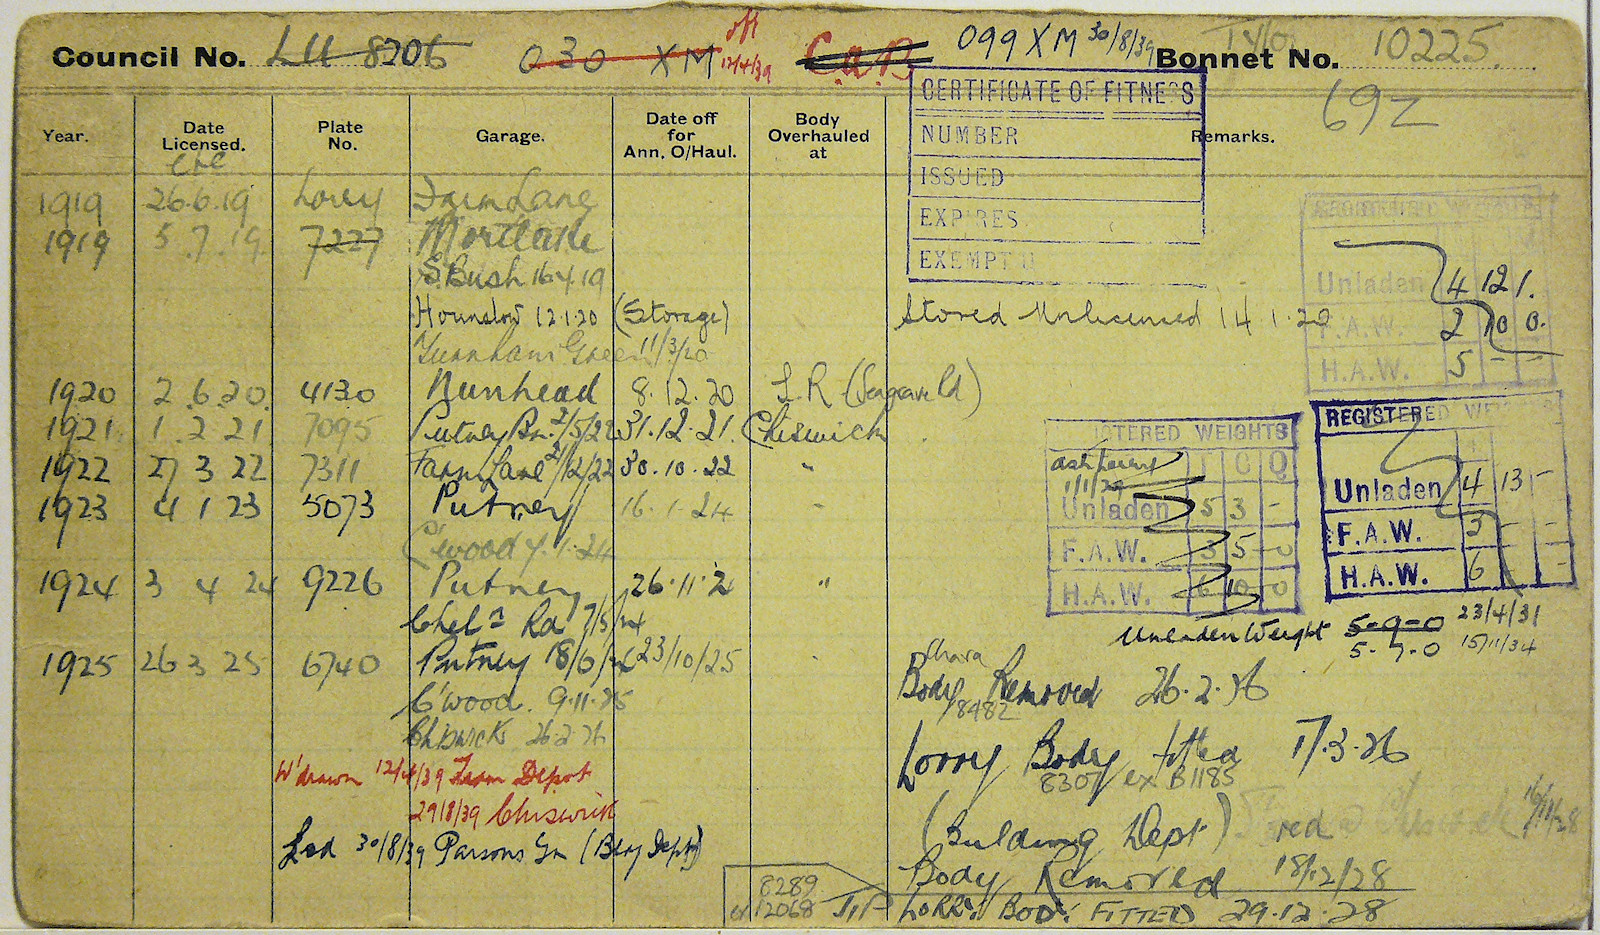 Council No. LU 8206 030 XM off 12/4/39 C.a.B. 099 XM 30/8/39 Bonnet No. 10225.
69Z
Year. Date Licensed. Plate No. Garage. Date off for Ann. O/Haul. Body Overhauled at Remarks.
CERTIFICATE OF FITNESS
NUMBER
ISSUED
EXPIRES
EXEMPT
1919 26.6.19 Lorry Farm Lane
1919 5.7.19 7227 Mortlake
S. Bush 16.4.19
Hounslow 12.1.20 (Storage) Stored Unlicensed 14.1.20
Turnham Green 11/3/20
REGISTERED WEIGHTS
Unladen 4 12 1.
F.A.W. 2 10 0.
H.A.W. 5 - -
1920 2 6 20 4130 Nunhead 8.12.20 L.R
1921 1 2 21 7095 Putney Bn. 2/5/22 31.12.21. Chiswick
1922 27 3 22 7311 Farm Lane 2/12/22 30.10.22 "
1923 4 1 23 5073 Putney 16.1.24 "
C'wood 7.1.24
1924 3 4 24 9226 Putney 26.11.2 "
Chel a Rd 7/5/24
1925 26 3 25 6740 Putney 23/10/25 "
C'wood. 9.11.25
Chiswick 26.2.26
ISTERED WEIGHTS
1/1/29
Unladen 5 3 -
F.A.W. 3 5 0
H.A.W. 6 10 0
REGISTERED WEIGHTS
Unladen 4 13 -
F.A.W. 3 - -
H.A.W. 6 - -
Unladen Weight 5-9-0 23/4/31
5-7-0 15/11/34
Chara
Body Removed 26.2.26
8482
Lorry Body fitted 17.3.26
8307 ex B1185
(Building Dept)
Body Removed 18/12/28
LORRY BODY FITTED 29.12.28
W'drawn 12/4/39 From Depot
29/8/39 Chiswick
Lsd 30/8/39 Parsons Gn
8289
ex 12068